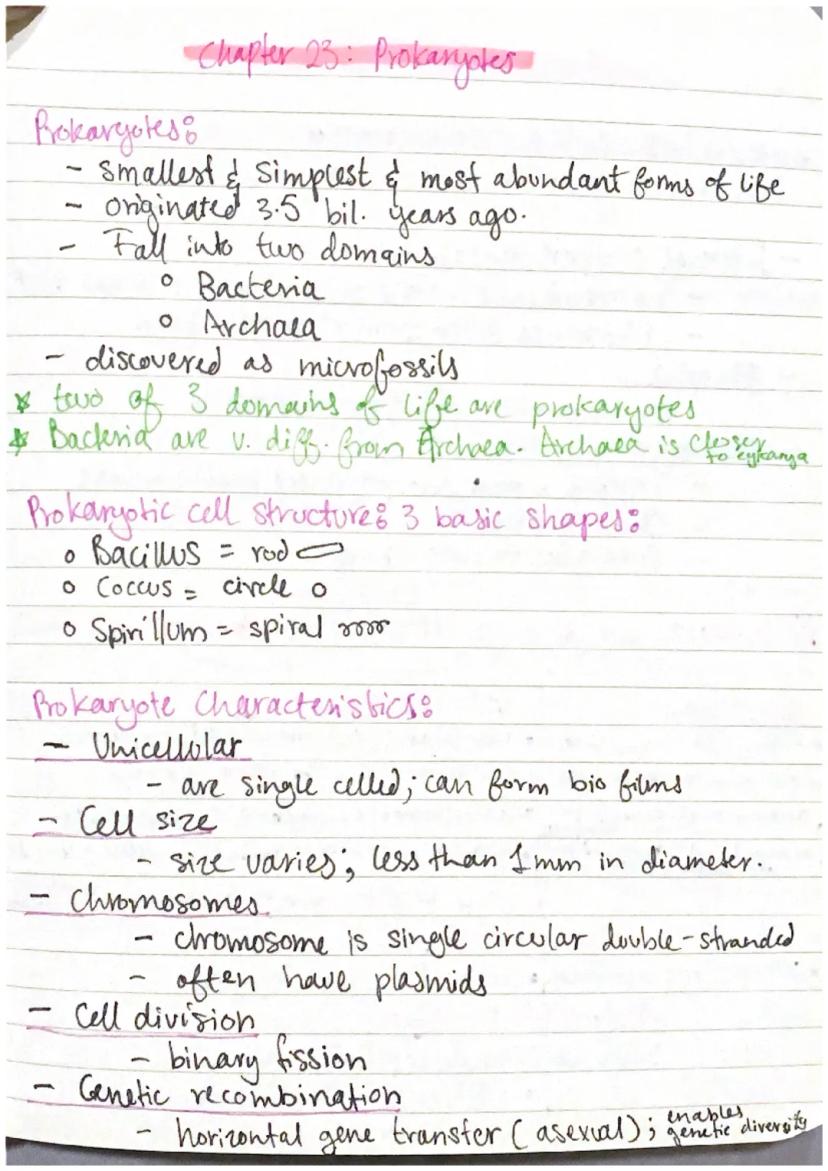 Chapter 23: Prokaryotes
Prokaryotes:
- Smallest & Simplest & most abundant forms of life
- originated 3.5 bil. years ago.
- Fall into two domains
o Bacteria
o Archaea
- discovered as microfossils
* two of 3 domains of life are prokaryotes
* Bacteria are v. diff. from Archaea. Archaea is closer to eykarya
Prokaryotic cell structure: 3 basic shapes:
o Bacillus = rod
o Coccus = circle
o Spirillum = spiral
Prokaryote Characteristics:
- Unicellular
- are single celled; can form bio films
- Cell size
- size varies; less than 1mm in diameter.
- Chromosomes
- chromosome is single circular double-stranded
- often have plasmids
- Cell division
- binary fission
- Genetic recombination
- horizontal gene transfer (asexual); enables genetic diversity